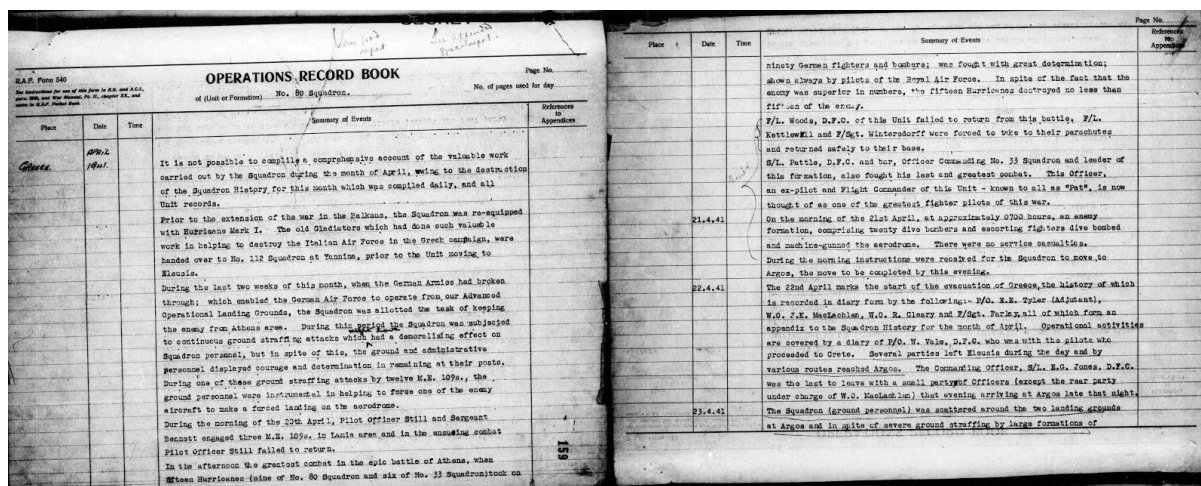 SECRET
Very good
report
See appended
R.A.F. Form 540
See instructions for use of this form in K.R. and A.C.I.,
para. 2349, and War Manual, Pt. II., chapter XX., and
notes in R.A.F. Pocket Book.
OPERATIONS RECORD BOOK
of (Unit or Formation) No. 80 Squadron.
Page No.
No. of pages used for day
Place
Date
Time
Summary of Events
References
to
Appendices
Greece.
APRIL
1941.
It is not possible to complile a comprehensive account of the valuable work
carried out by the Squadron during the month of April, owing to the destruction
of the Squadron History for this month which was compiled daily, and all
Unit records.
Prior to the extension of the war in the Balkans, the Squadron was re-equipped
with Hurricane Mark I. The old Gladiators which had done such valuable
work in helping to destroy the Italian Air Force in the Greek campaign, were
handed over to No. 112 Squadron at Yannina, prior to the Unit moving to
Eleusis.
During the last two weeks of this month, when the German Armies had broken
through; which enabled the German Air Force to operate from our Advanced
Operational Landing Grounds, the Squadron was allotted the task of keeping
the enemy from Athens area. During this period the Squadron was subjected
might have
to continuous ground straffing attacks which had a demoralising effect on
Squadron personnel, but in spite of this, the ground and administrative
personnel displayed courage and determination in remaining at their posts.
During one of these ground straffing attacks by twelve M.E. 109s., the
ground personnel were instrumental in helping to force one of the enemy
aircraft to make a forced landing on the aerodrome.
During the morning of the 20th April, Pilot Officer Still and Sergeant
Bennett engaged three M.E. 109s. in Lamia area and in the ensuing combat
Pilot Officer Still failed to return.
In the afternoon the greatest combat in the epic battle of Athens, when
fifteen Hurricanes (nine of No. 80 Squadron and six of No. 33 Squadron)took on
159
Page No.
Place
Date
Time
Summary of Events
References
to
Appendices
ninety German fighters and bombers; was fought with great determination;
shown always by pilots of the Royal Air Force. In spite of the fact that the
enemy was superior in numbers, the fifteen Hurricanes destroyed no less than
fifteen of the enemy.
F/L. Woods, D.F.C. of this Unit failed to return from this battle. F/L.
Kettlewell and F/Sgt. Wintersdorff were forced to take to their parachutes
and returned safely to their base.
S/L. Pattle, D.F.C. and bar, Officer Commanding No. 33 Squadron and leader of
this formation, also fought his last and greatest combat. This Officer,
an ex-pilot and Flight Commander of this Unit - known to all as "Pat", is now
thought of as one of the greatest fighter pilots of this war.
21.4.41 On the morning of the 21st April, at approximately 0700 hours, an enemy
formation, comprising twenty dive bombers and escorting fighters dive bombed
and machine-gunned the aerodrome. There were no service casualties.
During the morning instructions were received for the Squadron to move to
Argos, the move to be completed by this evening.
22.4.41 The 22nd April marks the start of the evacuation of Greece, the history of which
is recorded in diary form by the following:- P/O. E.E. Tyler (Adjutant),
W.O. J.K. MacLachlan, W.O. R. Cleary and F/Sgt. Farley, all of which form an
appendix to the Squadron History for the month of April. Operational activities
are covered by a diary of P/O. W. Vale, D.F.C. who was with the pilots who
proceeded to Crete. Several parties left Eleusis during the day and by
various routes reached Argos. The Commanding Officer, S/L. E.G. Jones, D.F.C.
was the last to leave with a small party of Officers (except the rear party
under charge of W.O. MacLachlan) that evening arriving at Argos late that night.
23.4.41 The Squadron (ground personnel) was scattered around the two landing grounds
at Argos and in spite of severe ground straffing by large formations of